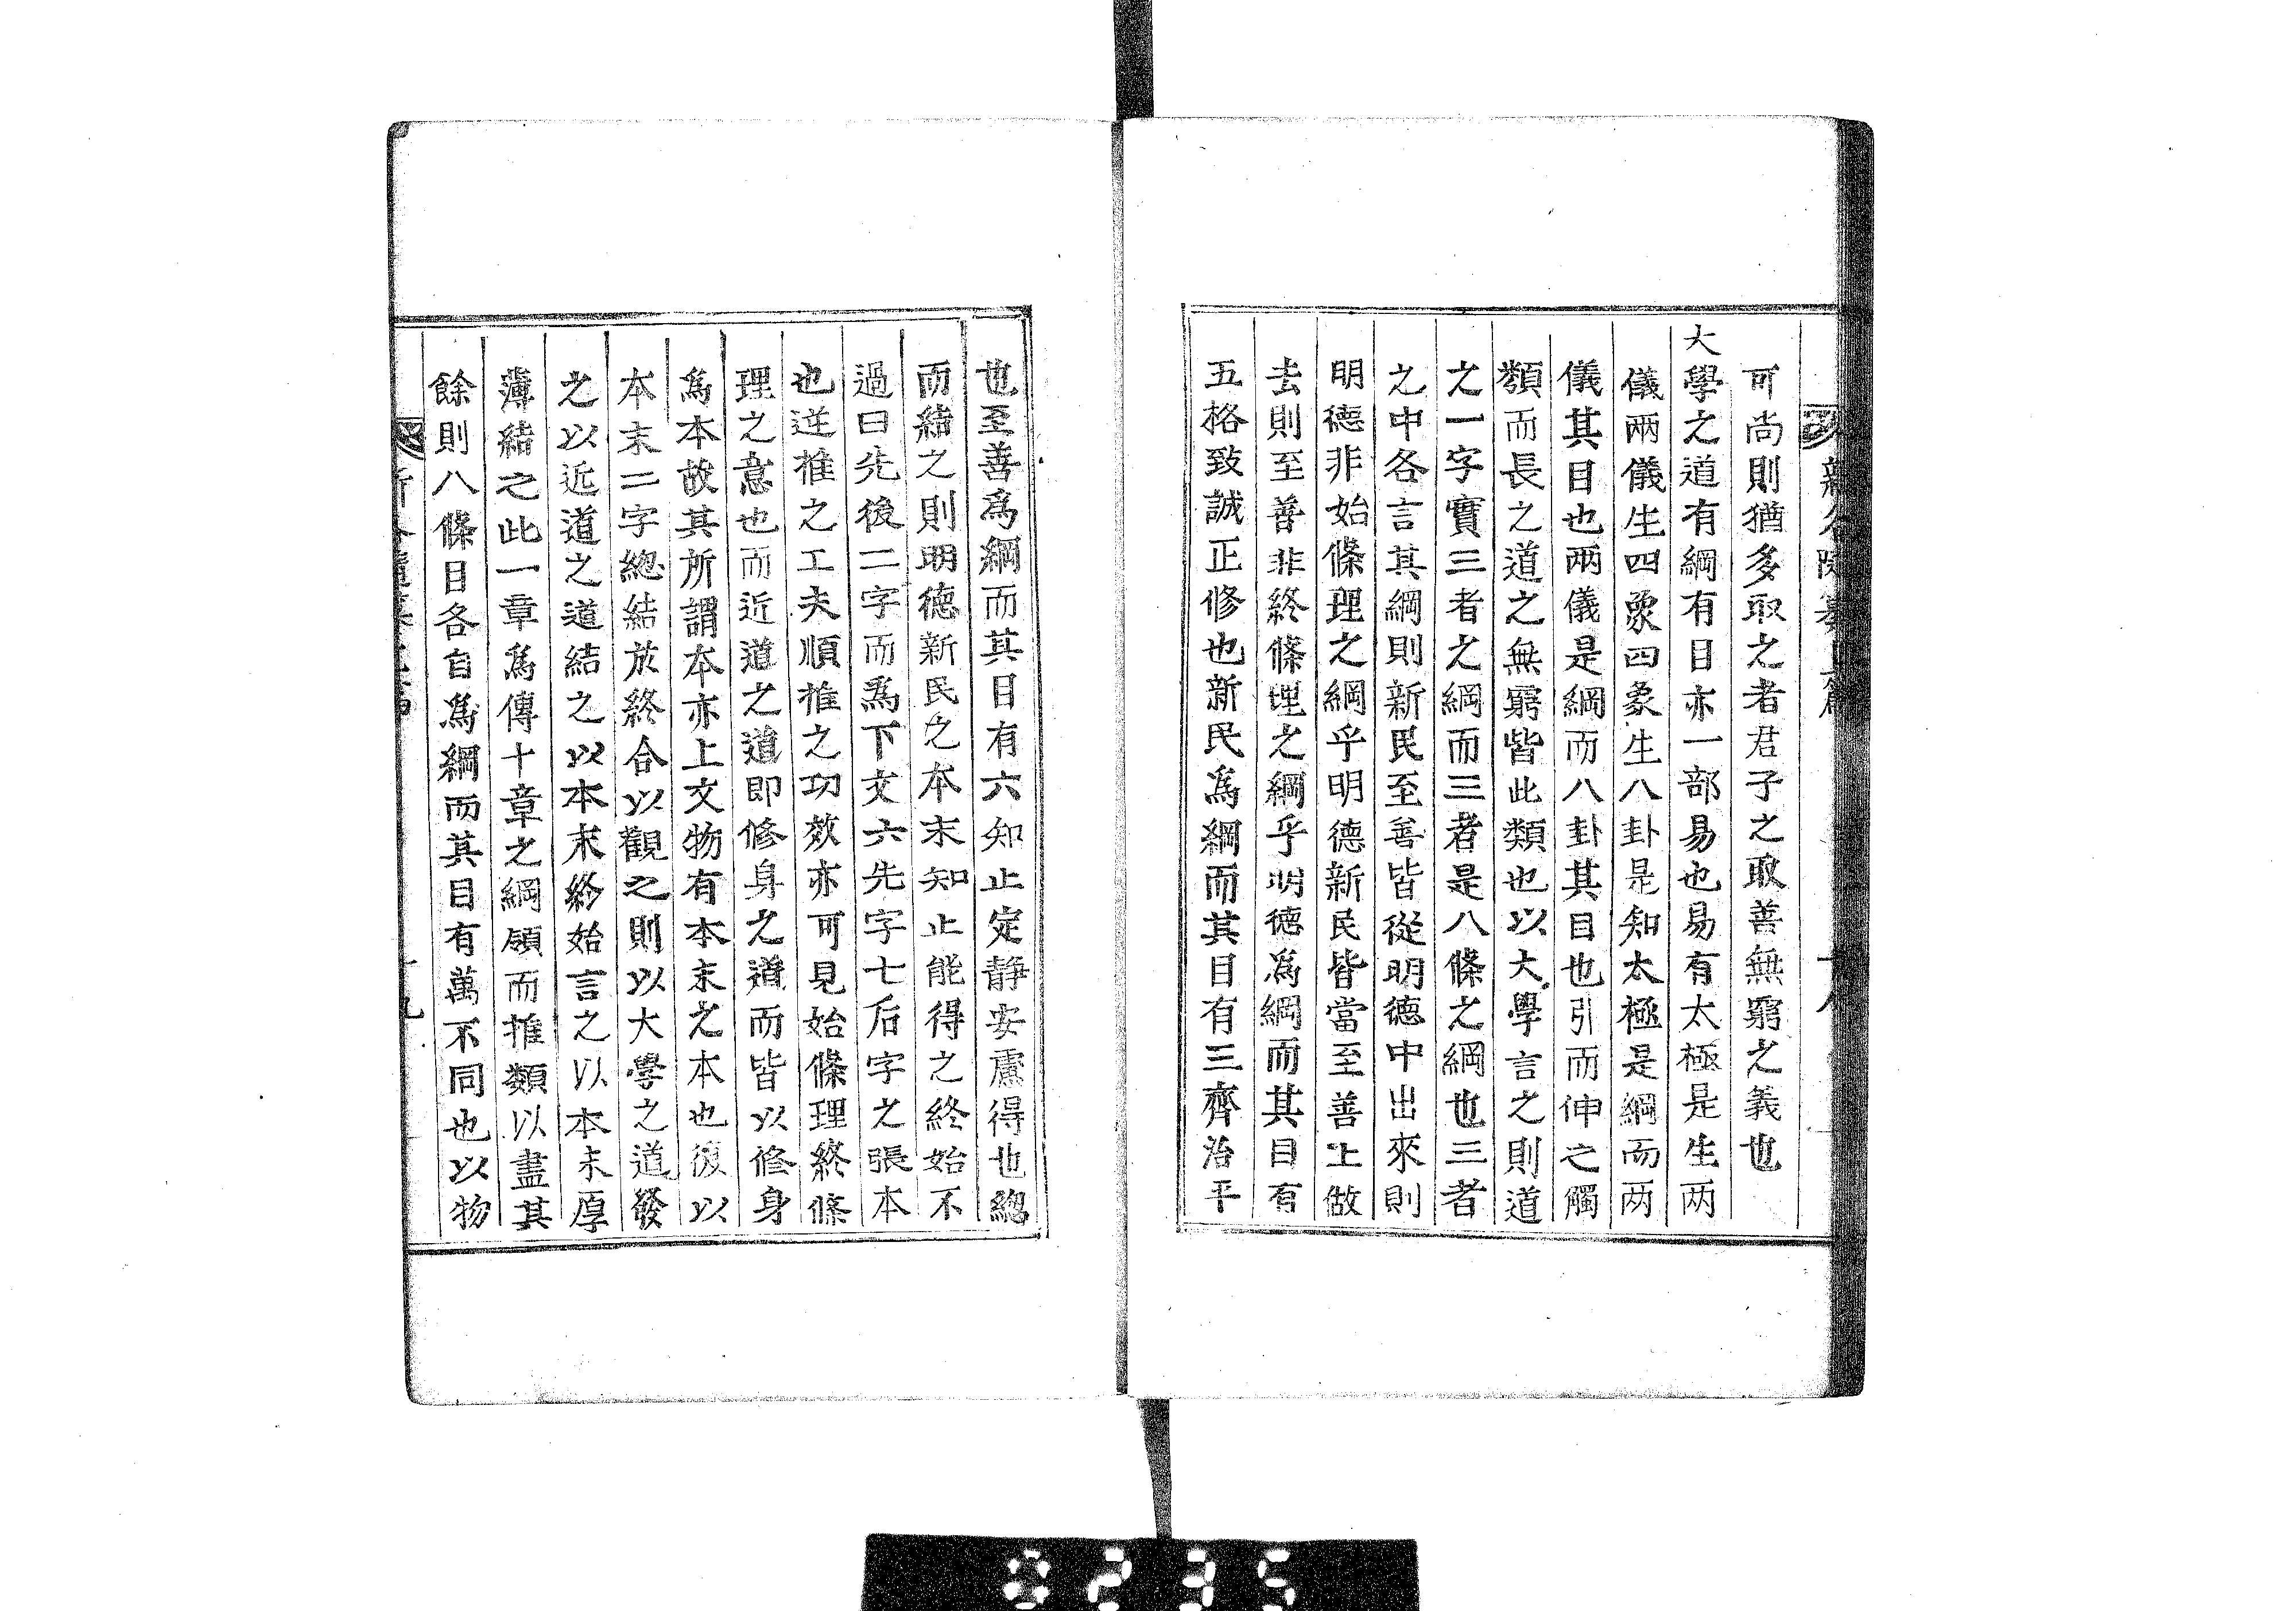 可尚則猶多取之者君子之取善無窮之義也
大學之道有綱有目亦一部易也易有太極是生兩
儀兩儀生四象四象生八卦是知太極是綱而两
儀其目也兩儀是綱而八卦其目也引而伸之觸
類而長之道之無窮皆此類也以大學言之則道
之一字實三者之綱而三者是八條之綱也三者
之中各言其綱則新民至善皆從明德中出來則
明德非始條理之綱乎明德新民皆當至善上做
去則至善非終條理之綱乎明德為綱而其目有
五格致誠正修也新民為綱而其目有三齊治平
也至善為綱而其目有六知止定静安慮得也總
而結之則明德新民之本末知止能得之終始不
過曰先後二字而爲下文六先字七后字之張本
也逆推之工夫順推之功效亦可見始條理終條
理之意也而近道之道即修身之道而皆以修身
為本故其所謂本亦上文物有本末之本也復以
本末二字總結於終合以觀之則以大學之道發
之以近道之道結之以本末終始言之以本末厚
薄結之此一章爲傳十章之綱領而推類以盡其
餘則八條目各自爲綱而其目有萬不同也以物
0235